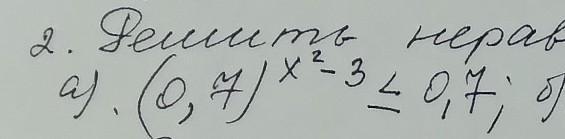 2. Решить нерав
а). (0,7)^{x²-3} ≤ 0,7; б)